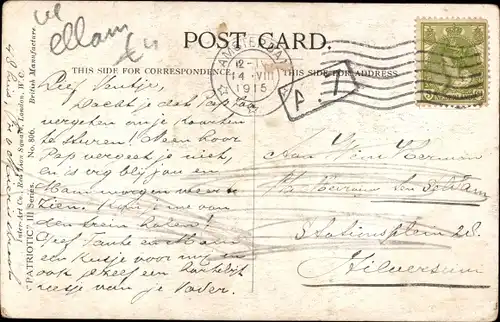 POST CARD.
THIS SIDE FOR CORRESPONDENCE
THIS SIDE FOR ADDRESS
AMSTERDAM
12-1
14 VIII
1915
A.D
Lief Ventje,
Dacht je dat Pap zou
vergeten om je kaarten
te sturen! Neen hoor
Pap vergeet je niet,
en is erg blij jou en
Mam morgen weer te
zien. Kom je me van
den trein halen?
Geef Tante en Mam
een kusje voor mij en
ook jezelf een hartelijk
van je Vader.
Aan
Stationsplein 28.
Hilversum
"PATRIOTIC" III Series.
No. 806.
British Manufacture.
Inter-Art Co., Red Lion Square, London, W.C.